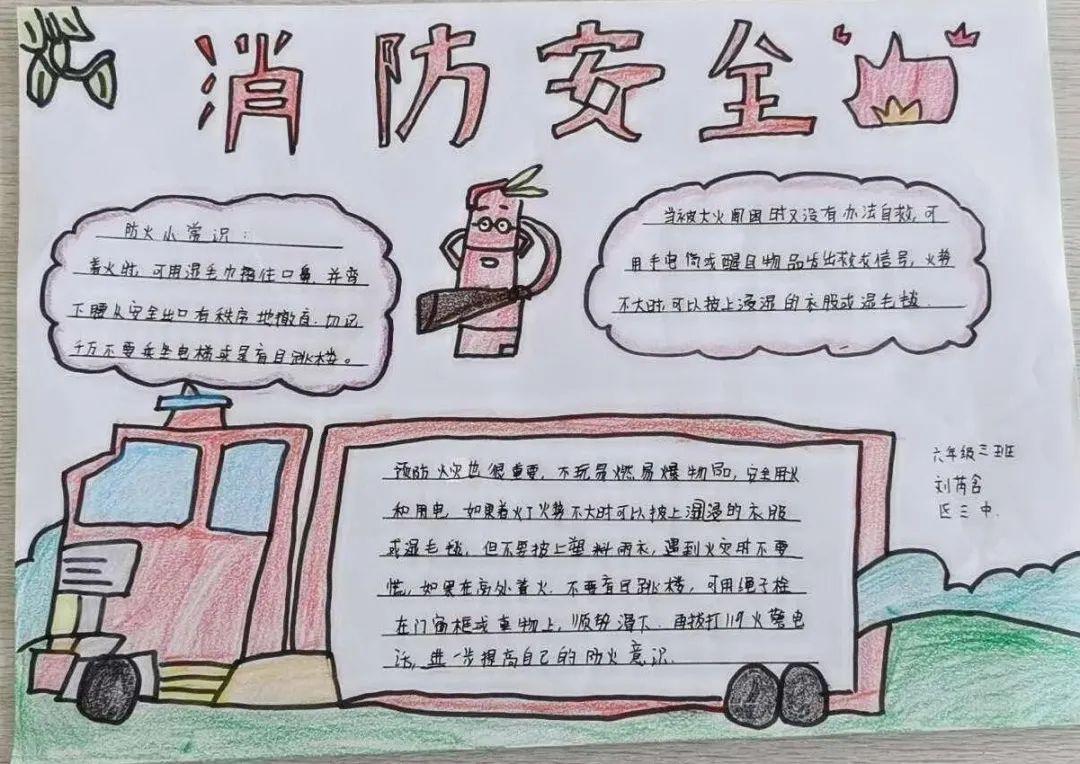 消防安全
防火小常识:
着火时,可用湿毛巾捂住口鼻,并弯
下腰从安全出口有秩序地撤离.切记
千万不要乘坐电梯或是盲目跳楼。
当被大火围困时又没有办法自救,可
用手电筒或醒目物品发出救援信号,火势
不大时,可以披上浸湿的衣服或湿毛毯.
预防火灾也很重要,不玩易燃易爆物品,安全用火
和用电,如果着火了火势不大时可以披上浸的衣服
或湿毛毯,但不要披上塑料雨衣,遇到火灾时不要
慌,如果在高处着火.不要盲目跳楼,可用绳子栓
在门窗框或重物上,顺势滑下.再拨打119火警电
话,进一步提高自己的防火意识.
六年级三班
刘芮含
区三中.